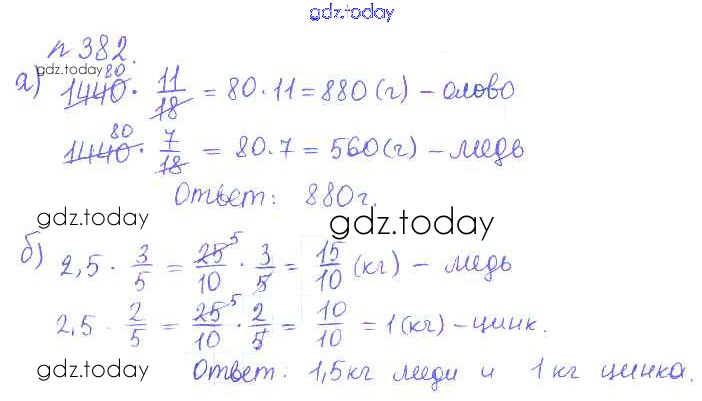 gdz.today
n 382.
gdz.today
а) 1440 80 · 11/18 = 80 · 11 = 880 (г) – олово
1440 80 · 7/18 = 80 · 7 = 560 (г) – медь
Ответ: 880 г.
gdz.today
gdz.today
б) 2,5 · 3/5 = 25 5/10 · 3/5 = 15/10 (кг) – медь
2,5 · 2/5 = 25 5/10 · 2/5 = 10/10 = 1 (кг) – цинк.
gdz.today
gdz.today
Ответ: 1,5 кг меди и 1 кг цинка.